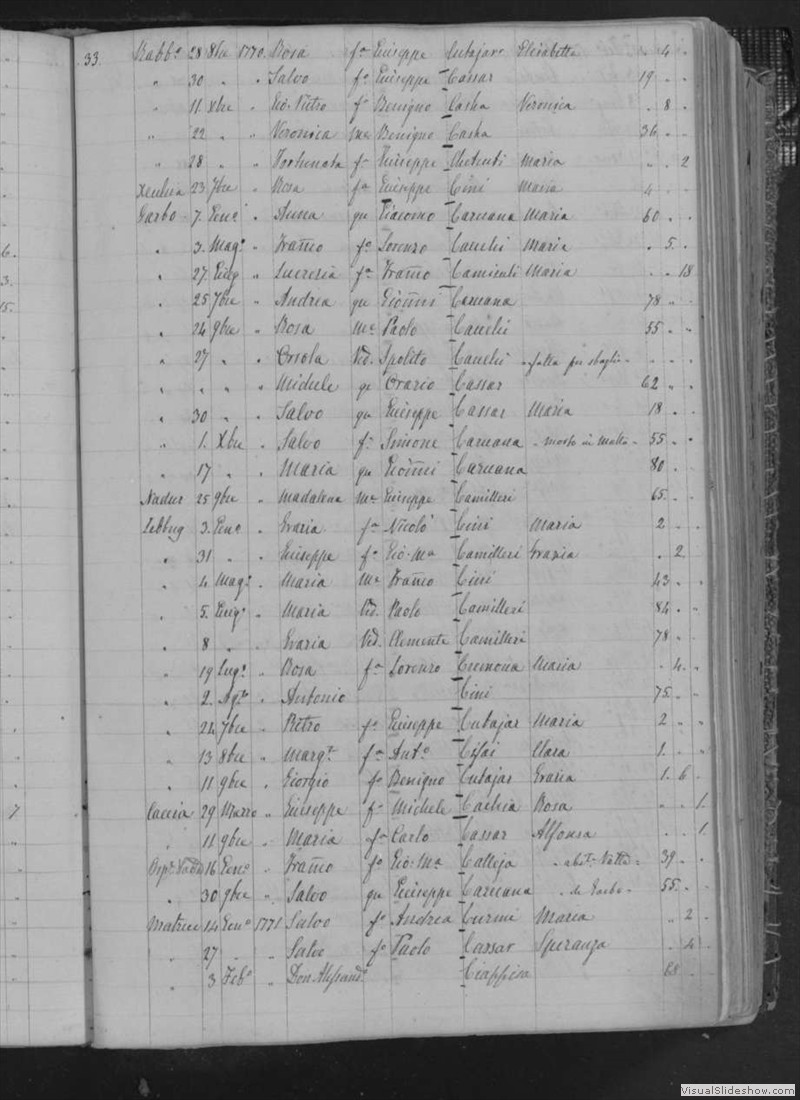 33. Rabb.o 28 8bre 1770. Rosa fa Giuseppe Cutajar Elisabetta " 4 "
" 30 " " Salvo fo Giuseppe Cassar 19 " "
" 11 Xbre " Gio: Pietro fo Benigno Casha Veronica " 8 "
" 22 " " Veronica Benigno Casha 36 " "
" 28 " " Fortunata fa Giuseppe Maria " " 2
Xeuchia 23 7bre " Rosa fa Giuseppe Cini Maria 4 "
Garbo 7 Genn.o " Anna qu Giacomo Caruana Maria 60 " "
" 3 Mag.o " Franco fo Lorenzo Cauchi Maria " 5 "
" 27 Giug " Lucresia fa Franco Camienti Maria " " 18
" 25 7bre " Andrea qu Gionni Caruana 78 "
" 24 9bre " Rosa Me Paolo Cauchi 55 " "
" 27 " " Orsola Ved. Ipolito Cauchi - fatta per sbaglio - " " "
" " " " Michele qu Orazio Cassar 62 " "
" 30 " " Salvo qu Giuseppe Cassar Maria 18 " "
" 1. Xbre " Salvo fo Simone Caruana - morto in Malta - 55 " "
" 17 " " Maria qu Gionni Caruana 80 "
Nadur 25 9bre " Madalena Me Giuseppe Camilleri 65 "
Zebbug 3 Genn.o " Grazia fa Nicolò Cini Maria 2 " "
" 31 " " Giuseppe fo Gio: Ma Camilleri Grazia " 2
" 4 Mag.o " Maria Me Franco Cini 43 " "
" 5 Giug.o " Maria Ved. Paolo Camilleri 84 " "
" 8 " " Grazia Ved. Clemente Camilleri 78 " "
" 19 Lug.o " Rosa fa Lorenzo Cremona Maria " 4 "
" 2 Ag.to " Antonio Cini 75 " "
" 24 7bre " Pietro fo Giuseppe Cutajar Maria 2 " "
" 13 8bre " Marg.ta fa Ant.o Cifai Clara 1 " "
" 11 9bre " Giorgio fo Benigno Cutajar Grazia 1 6 "
Caccia 29 Marzo " Giuseppe fo Michele Cachia Rosa " " 1
" 11 9bre " Maria fa Carlo Cassar Alfonsa " " 1
16 Genn.o " Franco fo Gio: Ma Calleja 39 " "
" 30 9bre " Salvo qu Giuseppe Caruana - de Garbo - 55 " "
Matrice 14 Genn.o 1771 Salvo fo Andrea Curmi Maria " 2 "
" 27 " " Salvo fo Paolo Cassar Speranza " 4 "
" 3 Feb.o " Don Alessand.o 68 "
6.
3.
15.
7
VisualSlideshow.com